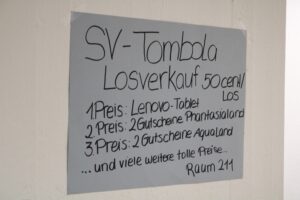 SV-Tombola
Losverkauf 50 cent/
LOS
1 Preis: Lenovo-Tablet
2. Preis: 2 Gutscheine Phantasialand
3. Preis: 2 Gutscheine Aqualand
... und viele weitere tolle Preise...
Raum 211